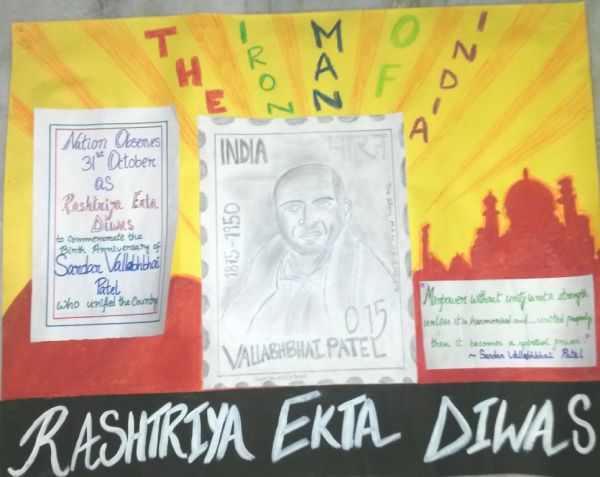 THE IRON MAN OF INDIA
Nation Observes
31st October
as
Rashtriya Ekta
Diwas
to commemorate the
Birth Anniversary of
Sardar Vallabhbhai
Patel
who unified the Country
INDIA भारत
1875-1950
The Iron Man of India
0.15
VALLABHBHAI PATEL
"Manpower without unity is not a strength
unless it is harmonised and united properly
then it becomes a spiritual power."
~ Sardar Vallabhbhai Patel
RASHTRIYA EKTA DIWAS